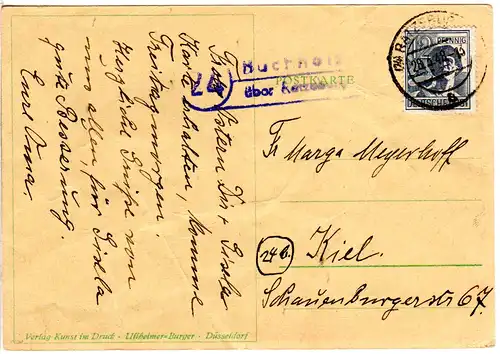 Frohe Ostern Dir + Gisela
Karte erhalten, komme
Freitag morgen.
Herzliche Grüße von
uns allen, für Gisela
gute Besserung.
Eure Oma.
(24)
Buchholz
über Ratzeburg
POSTKARTE
12 PFENNIG
DEUTSCHE POST
Fr Marga Meyerhoff
24b
Kiel.
Schauenburgerstr 67.
Verlag Kunst im Druck - Ullheimer-Burger - Düsseldorf